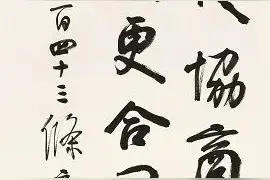 協商
更合
百四十三條